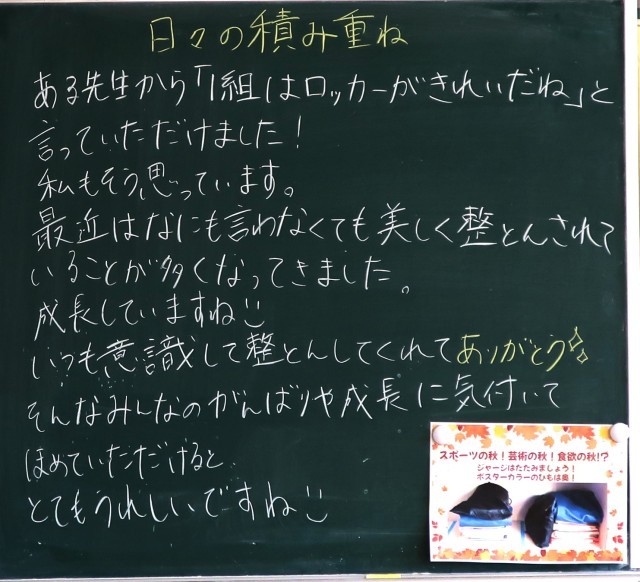 日々の積み重ね
ある先生から「1組はロッカーがきれいだね」と
言っていただけました！
私もそう思っています。
最近はなにも言わなくても美しく整とんされて
いることが多くなってきました。
成長していますね
いつも意識して整とんしてくれてありがとう
そんなみんなのがんばりや成長に気付いて
ほめていただけると
とてもうれしいですね
スポーツの秋！芸術の秋！食欲の秋!?
ジャージはたたみましょう！
ポスターカラーのひもは奥！